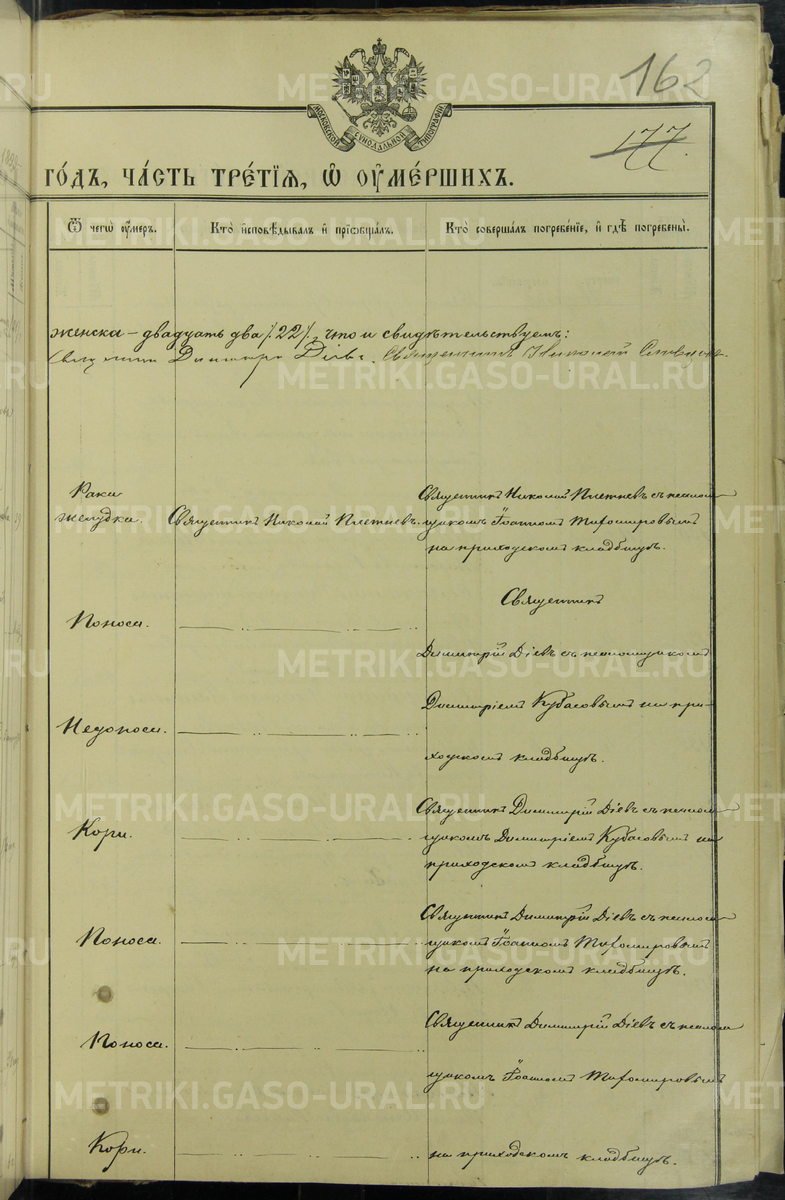 162
177.
МОСКОВСКОЙ СѴНОДАЛЬНОЙ ТИПОГРАФІИ
ГО́ДЪ, ЧА́СТЬ ТРЕ́ТІѦ, Ѡ҆ ОУ҆МЕ́РШИХЪ.
Ѿ чегѡ̀ оу҆́меръ.
Кто̀ и҆сповѣ́дывалъ и҆ прїѡбща́лъ.
Кто̀ соверша́лъ погребе́нїе, и҆ гдѣ̀ погребены̀.
женска – двадцать два /22/, что и свидѣтельствуемъ:
Димитрій Діевъ. Священникъ Николай
Рака
желудка.
Священникъ Николай Плетневъ.
Священникъ Николай Плетневъ съ псалом-
щикомъ Іоанномъ Тихомировымъ
на приходскомъ кладбищѣ.
Поноса.
Священникъ
Димитрій Діевъ съ псаломщикомъ
Недоноси.
Димитріемъ Кубасовымъ на при-
ходскомъ кладбищѣ.
Кори.
Священникъ Димитрій Діевъ съ псалом-
щикомъ Димитріемъ Кубасовымъ на
приходскомъ кладбищѣ.
Поноса.
Священникъ Димитрій Діевъ съ псалом-
щикомъ Іоанномъ Тихомировымъ
на приходскомъ кладбищѣ.
Поноса.
Священникъ Димитрій Діевъ съ псалом-
щикомъ Іоанномъ Тихомировымъ
Кори.
на приходскомъ кладбищѣ.
METRIKI.GASO-URAL.RU